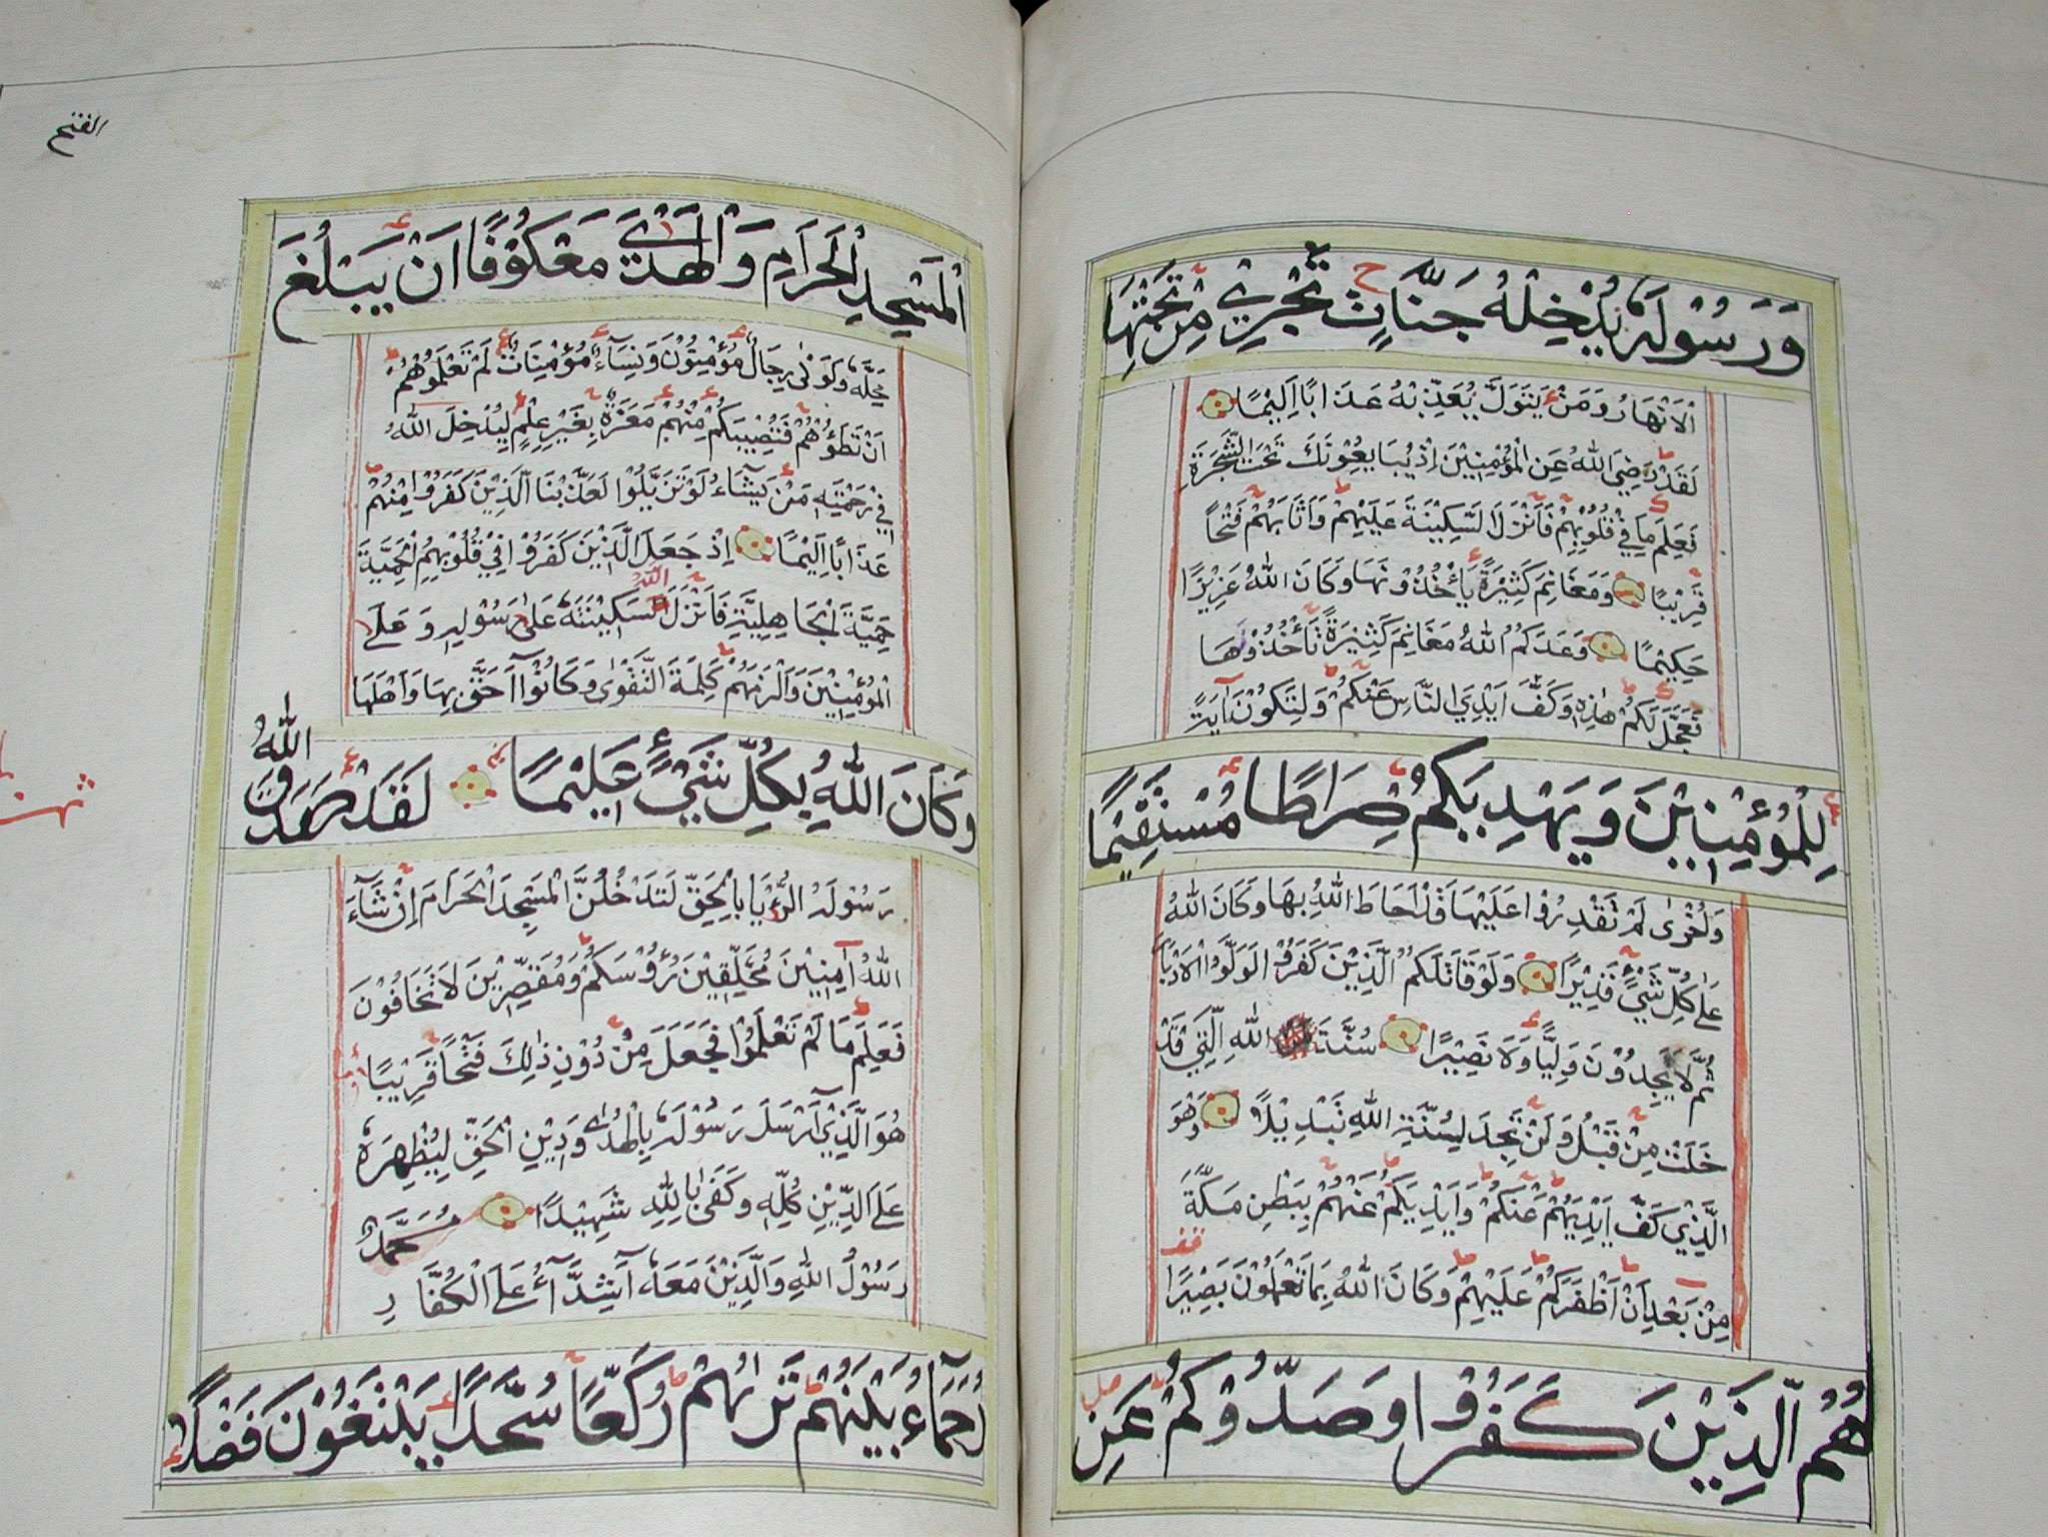 وَرَسُوْلَهٗ يُدْخِلْهُ جَنَّاتٍ تَجْرِيْ مِنْ تَحْتِهَا
الْاَنْهَارُ وَمَنْ يَتَوَلَّ يُعَذِّبْهُ عَذَابًا اَلِيْمًا
لَقَدْ رَضِيَ اللهُ عَنِ الْمُؤْمِنِيْنَ اِذْ يُبَايِعُوْنَكَ تَحْتَ الشَّجَرَةِ
فَعَلِمَ مَا فِيْ قُلُوْبِهِمْ فَاَنْزَلَ السَّكِيْنَةَ عَلَيْهِمْ وَاَثَابَهُمْ فَتْحًا
قَرِيْبًا وَمَغَانِمَ كَثِيْرَةً يَاْخُذُوْنَهَا وَكَانَ اللهُ عَزِيْزًا
حَكِيْمًا وَعَدَكُمُ اللهُ مَغَانِمَ كَثِيْرَةً تَاْخُذُوْنَهَا
فَعَجَّلَ لَكُمْ هٰذِهٖ وَكَفَّ اَيْدِيَ النَّاسِ عَنْكُمْ وَلِتَكُوْنَ اٰيَةً
لِلْمُؤْمِنِيْنَ وَيَهْدِيَكُمْ صِرَاطًا مُسْتَقِيْمًا
وَاُخْرٰى لَمْ تَقْدِرُوْا عَلَيْهَا قَدْ اَحَاطَ اللهُ بِهَا وَكَانَ اللهُ
عَلٰى كُلِّ شَيْءٍ قَدِيْرًا وَلَوْ قَاتَلَكُمُ الَّذِيْنَ كَفَرُوْا لَوَلَّوُا الْاَدْبَا
ثُمَّ لَا يَجِدُوْنَ وَلِيًّا وَلَا نَصِيْرًا سُنَّةَ اللهِ الَّتِيْ قَدْ
خَلَتْ مِنْ قَبْلُ وَلَنْ تَجِدَ لِسُنَّةِ اللهِ تَبْدِيْلًا وَهُوَ
الَّذِيْ كَفَّ اَيْدِيَهُمْ عَنْكُمْ وَاَيْدِيَكُمْ عَنْهُمْ بِبَطْنِ مَكَّةَ
مِنْ بَعْدِ اَنْ اَظْفَرَكُمْ عَلَيْهِمْ وَكَانَ اللهُ بِمَا تَعْمَلُوْنَ بَصِيْرًا
هُمُ الَّذِيْنَ كَفَرُوْا وَصَدُّوْكُمْ عَنِ
الفتح
الْمَسْجِدِ الْحَرَامِ وَالْهَدْيَ مَعْكُوْفًا اَنْ يَبْلُغَ
مَحِلَّهٗ وَلَوْلَا رِجَالٌ مُؤْمِنُوْنَ وَنِسَآءٌ مُؤْمِنَاتٌ لَمْ تَعْلَمُوْهُمْ
اَنْ تَطَؤُهُمْ فَتُصِيْبَكُمْ مِنْهُمْ مَعَرَّةٌ بِغَيْرِ عِلْمٍ لِيُدْخِلَ اللهُ
فِيْ رَحْمَتِهٖ مَنْ يَشَآءُ لَوْ تَزَيَّلُوْا لَعَذَّبْنَا الَّذِيْنَ كَفَرُوْا مِنْهُمْ
عَذَابًا اَلِيْمًا اِذْ جَعَلَ الَّذِيْنَ كَفَرُوْا فِيْ قُلُوْبِهِمُ الْحَمِيَّةَ
حَمِيَّةَ الْجَاهِلِيَّةِ فَاَنْزَلَ اللهُ سَكِيْنَتَهٗ عَلٰى رَسُوْلِهٖ وَعَلَى
الْمُؤْمِنِيْنَ وَاَلْزَمَهُمْ كَلِمَةَ التَّقْوٰى وَكَانُوْٓا اَحَقَّ بِهَا وَاَهْلَهَا
وَكَانَ اللهُ بِكُلِّ شَيْءٍ عَلِيْمًا لَقَدْ صَدَقَ اللهُ
رَسُوْلَهُ الرُّؤْيَا بِالْحَقِّ لَتَدْخُلُنَّ الْمَسْجِدَ الْحَرَامَ اِنْ شَآءَ
اللهُ اٰمِنِيْنَ مُحَلِّقِيْنَ رُؤُوْسَكُمْ وَمُقَصِّرِيْنَ لَا تَخَافُوْنَ
فَعَلِمَ مَا لَمْ تَعْلَمُوْا فَجَعَلَ مِنْ دُوْنِ ذٰلِكَ فَتْحًا قَرِيْبًا
هُوَ الَّذِيْٓ اَرْسَلَ رَسُوْلَهٗ بِالْهُدٰى وَدِيْنِ الْحَقِّ لِيُظْهِرَهٗ
عَلَى الدِّيْنِ كُلِّهٖ وَكَفٰى بِاللهِ شَهِيْدًا مُحَمَّدٌ
رَسُوْلُ اللهِ وَالَّذِيْنَ مَعَهٗٓ اَشِدَّآءُ عَلَى الْكُفَّارِ
رُحَمَآءُ بَيْنَهُمْ تَرٰىهُمْ رُكَّعًا سُجَّدًا يَبْتَغُوْنَ فَضْلًا